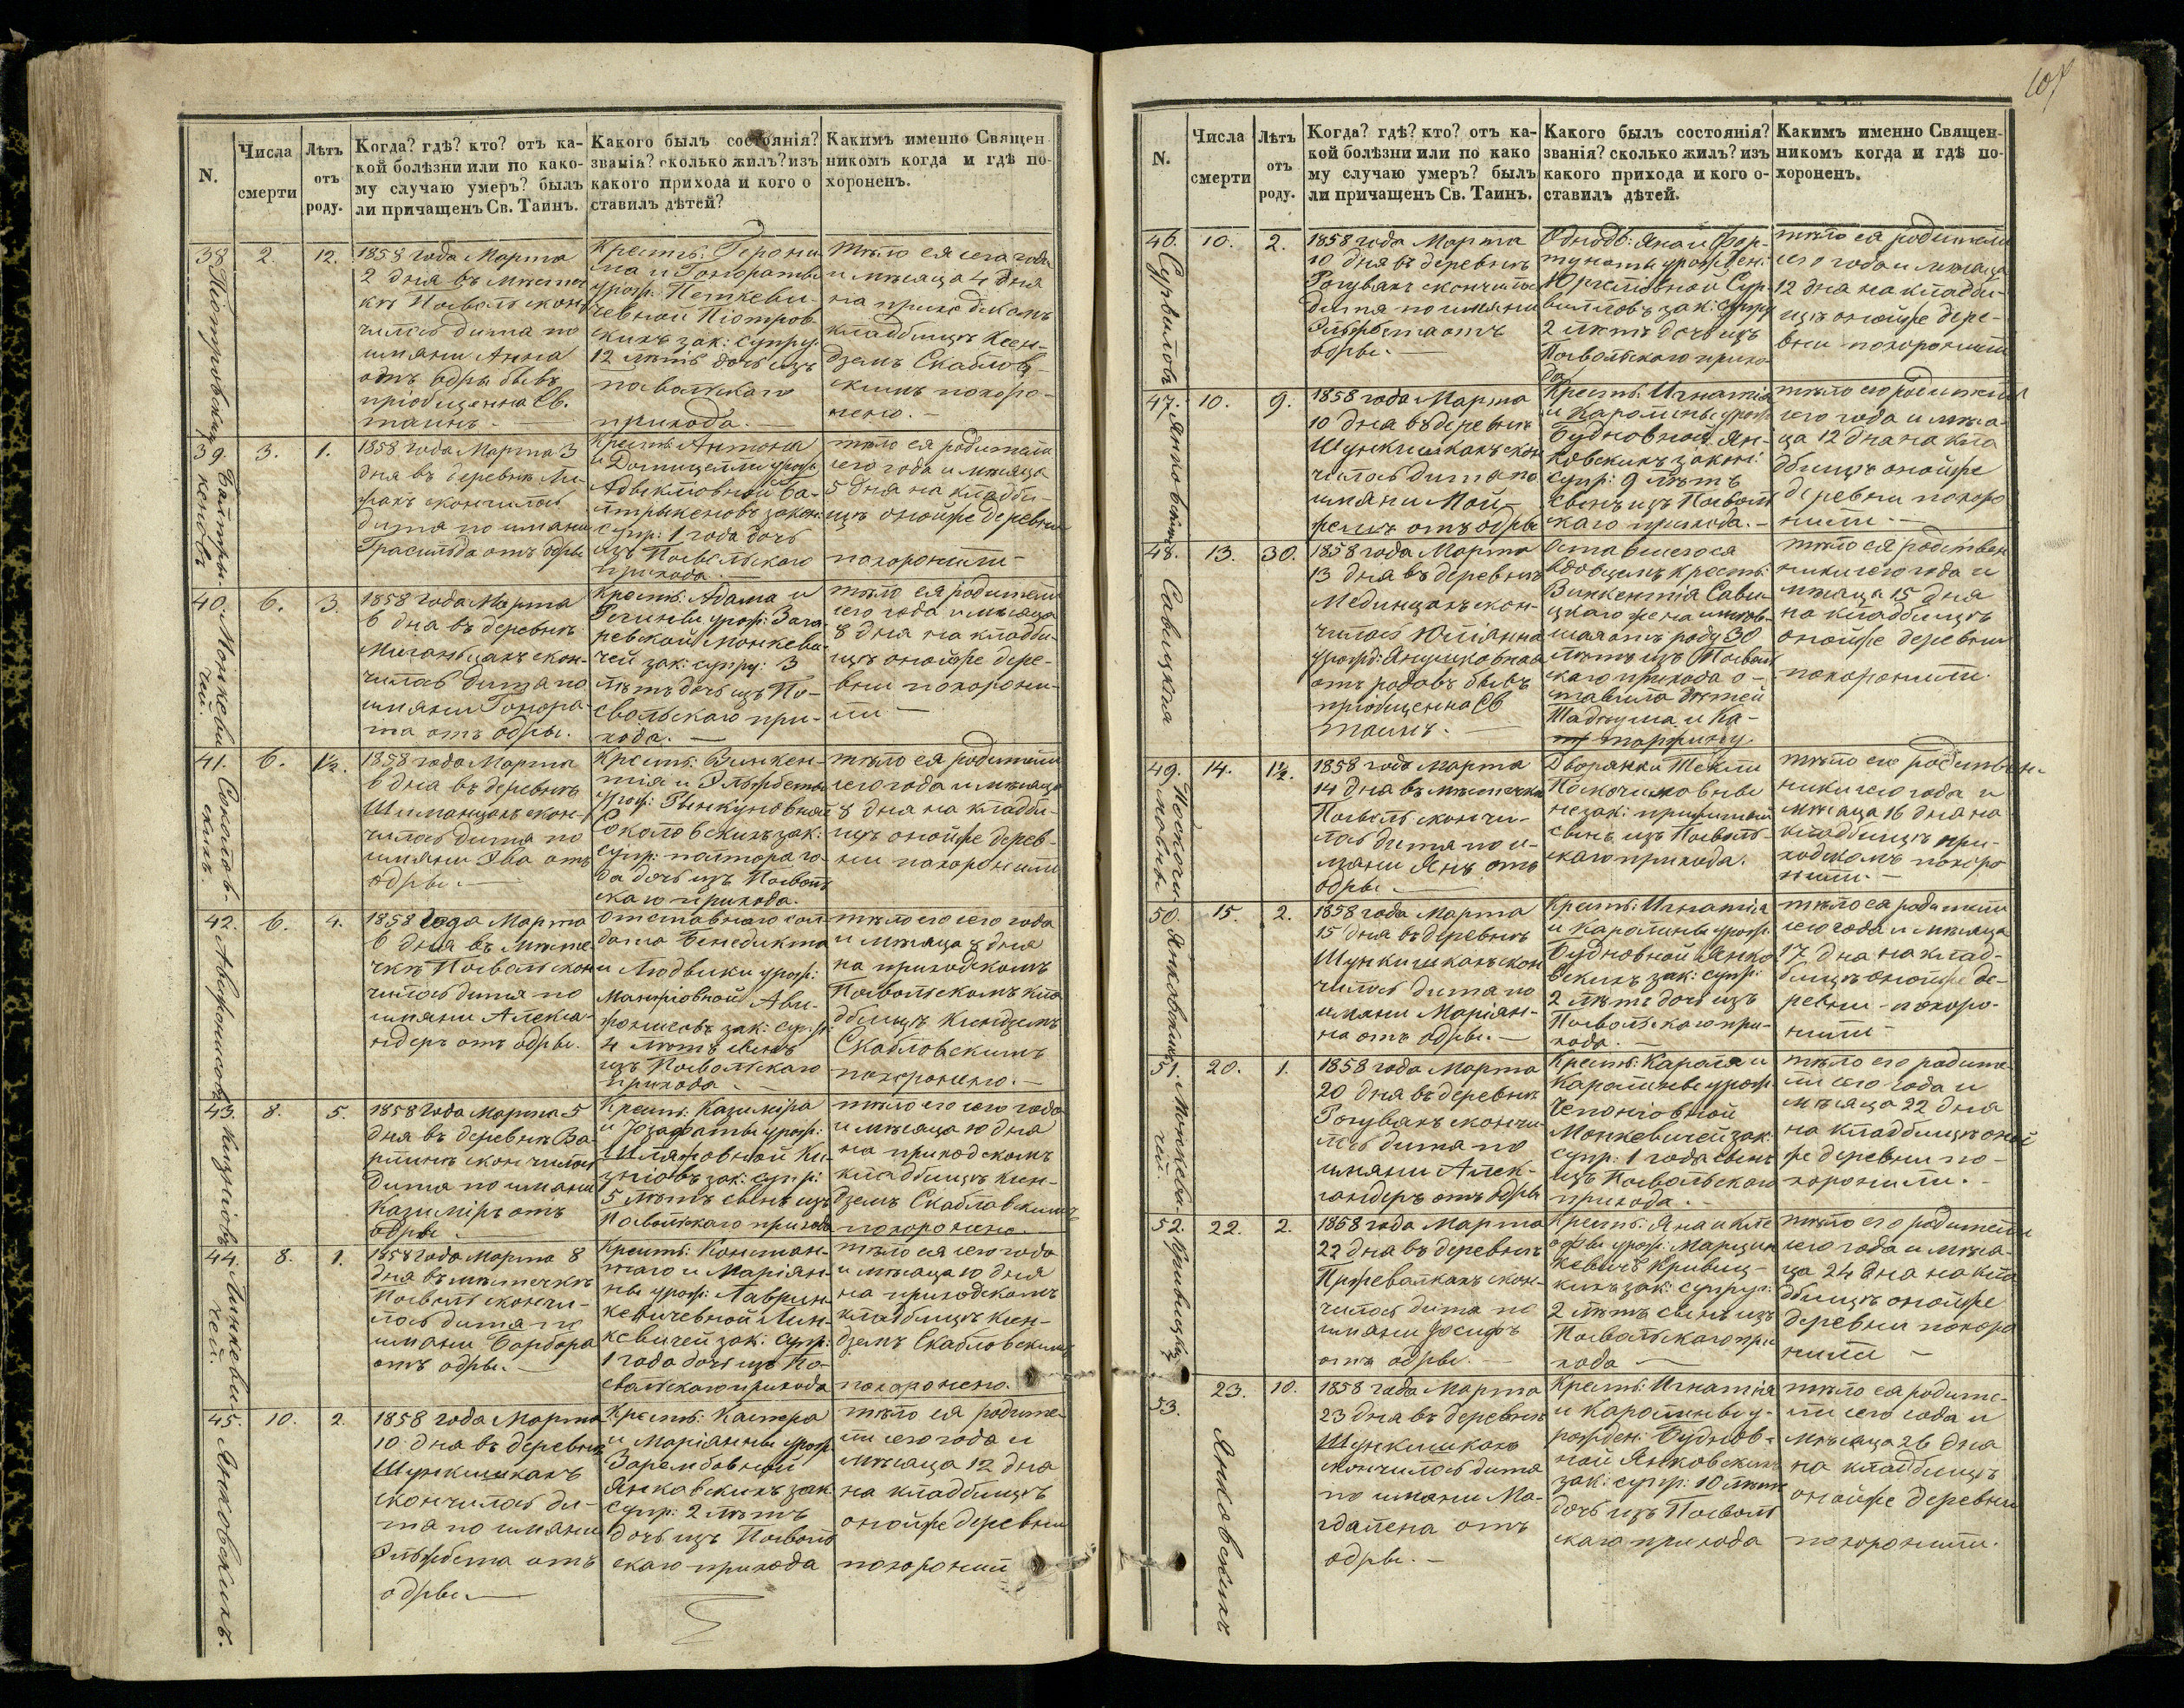 N.
Числа
смерти
Лѣтъ
отъ
роду.
Когда? гдѣ? кто? отъ ка-
кой болѣзни или по како-
му случаю умеръ? былъ
ли причащенъ Св. Таинъ.
Какого былъ состоянія?
званія? сколько жилъ? изъ
какого прихода и кого о
ставилъ дѣтей?
Какимъ именно Священ
никомъ когда и гдѣ по-
хороненъ.
38
Піотровскихъ
2.
12.
1858 года Марта
2 дня въ мѣстеч
кѣ Посволь скон
чилась дитя по
имяни Анна
отъ одры бывъ
пріобщенна Св.
таинъ.
Крестьѣ: Герони
ма и Гонораты
урож: Петкеви-
чевной Піотров
скихъ зак: супру:
12 лѣтъ дочь изъ
посвольскаго
прихода.
тѣло ея сего года
и мѣсяца 4 дня
на приходскомъ
кладбищѣ Ксен-
дземъ Скаблов-
скимъ похоро-
нено.
39.
3.
1.
1858 года Марта 3
дня въ деревнѣ
скончилась
дитя по имани
отъ одры
Крестьѣ: Антона
и Домицелли урож
супр: 1 года дочь
изъ Посвольскаго
прихода.
тѣло ея родители
сего года и мѣсяца
5 дня на кладби-
щѣ онойже деревни
похоронили
40.
Монкеви
чей.
6.
3.
1858 года Марта
6 дня въ деревнѣ
скон-
чилась дитя по
имяни Гонора-
та отъ одры.
Крестьѣ: Адама и
Монкеви
чей зак: супру: 3
лѣтъ дочь изъ По-
свольскаго при-
хода.
тѣло ея родители
сего года и мѣсяца
8 дня на кладби-
щѣ онойже дере-
вни похорони-
ли
41.
Соколов-
скихъ.
6.
1½.
1858 года Марта
6 дня въ деревнѣ
Шиманцахъ скон-
чилась дитя по
имяни Эва отъ
одры.
Крестьѣ: Винкен-
тія и Эльжбеты
урож:
Соколовскихъ зак:
супр: полтора го-
да дочь изъ Посволь
скаго прихода.
тѣло ея родители
сего года и мѣсяца
8 дня на кладби-
щѣ онойже дерев-
ни похоронили
42.
6.
4.
1858 года Марта
6 дня въ мѣсте
чкѣ Посволь скон
чилась дитя по
имяни Алекса-
ндеръ отъ одры.
отставнаго сол-
дата Бенедикта
и Людвики урож:
зак: супр:
4 лѣтъ сынъ
изъ Посвольскаго
прихода.
тѣло его сего года
и мѣсяца 8 дня
на приходскомъ
Посвольскомъ кла
дбищѣ Ксендземъ
Скабловскимъ
похоронено.
43.
8.
5.
1858 года Марта 5
дня въ деревнѣ
скончилась
дитя по имяни
Казиміръ отъ
одры
Крестьѣ: Казиміра
и Юзафаты урож:
зак: супр:
5 лѣтъ сынъ изъ
Посвольскаго прихода
тѣло его сего года
и мѣсяца 10 дня
на приходскомъ
кладбищѣ ксен-
дземъ Скабловскимъ
похоронено.
44.
Линкеви
чей.
8.
1.
1858 года Марта 8
дня въ мѣстечкѣ
Посволь скончи-
лась дитя по
имяни Барбора
отъ одры.
Крестьѣ: Констан-
таго и Маріян-
ны урож: Лаврин-
кевичевной Лин-
кевичей зак: супр:
1 года дочь изъ По-
свольскаго прихода
тѣло ея сего года
и мѣсяца 10 дня
на приходскомъ
кладбищѣ ксен-
дземъ Скабловскимъ
похоронено.
45.
Янковскихъ.
10.
2.
1858 года Марта
10 дня въ деревнѣ
Шункишкахъ
скончилась ди-
тя по имяни
Эльжбета отъ
одры.
Крестьѣ: Каспера
и Маріанны урож
Зарембовной
Янковскихъ зак:
супр: 2 лѣтъ
дочь изъ Посволь
скаго прихода
тѣло ея родите-
ли сего года и
мѣсяца 12 дня
на кладбищѣ
онойже деревни
похоронили
N.
Числа
смерти
Лѣтъ
отъ
роду.
Когда? гдѣ? кто? отъ ка-
кой болѣзни или по како
му случаю умеръ? былъ
ли причащенъ Св. Таинъ.
Какого былъ состоянія?
званія? сколько жилъ? изъ
какого прихода и кого о-
ставилъ дѣтей.
Какимъ именно Священ-
никомъ когда и гдѣ по-
хороненъ.
46.
Сурвилловъ
10.
2.
1858 года Марта
10 дня въ деревнѣ
Рогувкахъ скончилась
дитя по имяни
Эльжбета отъ
одры.
Однодв: Яна и Фор-
тунаты урожден:
Сур-
вилловъ зак: супру
2 лѣтъ дочь изъ
Посвольскаго прихо
да
тѣло ея родители
сего года и мѣсяца
12 дня на кладби-
щѣ онойже дере-
вни похоронили
47.
Янковскихъ
10.
9.
1858 года Марта
10 дня въ деревнѣ
Шункишкахъ скон
чилась дитя по
имяни Мой-
жешъ отъ одры
Крестьѣ: Игнатія
и Каролины урож
Будновной Ян-
ковскихъ закон:
супр: 9 лѣтъ
сынъ изъ Посволь
скаго прихода.
тѣло его родители
сего года и мѣся-
ца 12 дня на кла
дбищѣ онойже
деревни похоро
нили.
48.
Савицкая
13.
30.
1858 года Марта
13 дня въ деревнѣ
скон-
чилась Юліанна
урожд:
отъ родовъ бывъ
пріобщенна Св
таинъ.
оставшегося
вдовцемъ крестьѣ:
Винкентія Сави-
цкаго жена имѣв-
шая отъ роду 30
лѣтъ изъ Посволь
скаго прихода о-
ставила дѣтей
Тадеуша и Ка-
таржину
тѣло ея родствен
ники сего года и
мѣсяца 15 дня
на кладбищѣ
онойже деревни
похоронили.
49.
14.
1½.
1858 года Марта
14 дня въ мѣстечкѣ
Посволь скончи-
лась дитя по и-
мяни Янъ отъ
одры.
Дворянки Текли
незак: прижитой
сынъ изъ Посволь-
скаго прихода.
тѣло его родствен-
ники сего года и
мѣсяца 16 дня на
кладбищѣ при-
ходскомъ похоро
нили.
50.
Янковскихъ
15.
2.
1858 года Марта
15 дня въ деревнѣ
Шункишкахъ скон
чилась дитя по
имяни Маріян-
на отъ одры.
Крестьѣ: Игнатія
и Каролины урож:
Будновной Янко
вскихъ зак: супр:
2 лѣтъ дочь изъ
Посвольскаго при-
хода.
тѣло ея родители
сего года и мѣсяца
17 дня на клад-
бищѣ онойже де-
ревни похоро-
нили
51.
Монкеви
чей.
20.
1.
1858 года Марта
20 дня въ деревнѣ
Рогувкахъ скончи
лась дитя по
имяни Алек-
сандеръ отъ одры
Крестьѣ: Кароля и
Каролины урож
Монкевичей зак:
супр: 1 года сынъ
изъ Посвольскаго
прихода.
тѣло его родите
ли сего года и
мѣсяца 22 дня
на кладбищѣ оной
же деревни по-
хоронили.
52.
22.
2.
1858 года Марта
22 дня въ деревнѣ
скон-
чилась дитя по
имяни Іосифъ
отъ одры.
Крестьѣ: Яна и
урож:
зак: супру:
2 лѣтъ сынъ изъ
Посвольскаго при
хода
тѣло его родители
сего года и мѣся-
ца 24 дня на кла
дбищѣ онойже
деревни похоро
нили
53.
Янковскихъ.
23.
10.
1858 года Марта
23 дня въ деревнѣ
Шункишкахъ
скончилась дитя
по имяни Ма-
гдалена отъ
одры.
Крестьѣ: Игнатія
и Каролины у-
рожден: Буднов-
ной Янковскихъ
зак: супр: 10 лѣтъ
дочь изъ Посволь
скаго прихода
тѣло ея родите-
ли сего года и
мѣсяца 26 дня
на кладбищѣ
онойже деревни
похоронили.